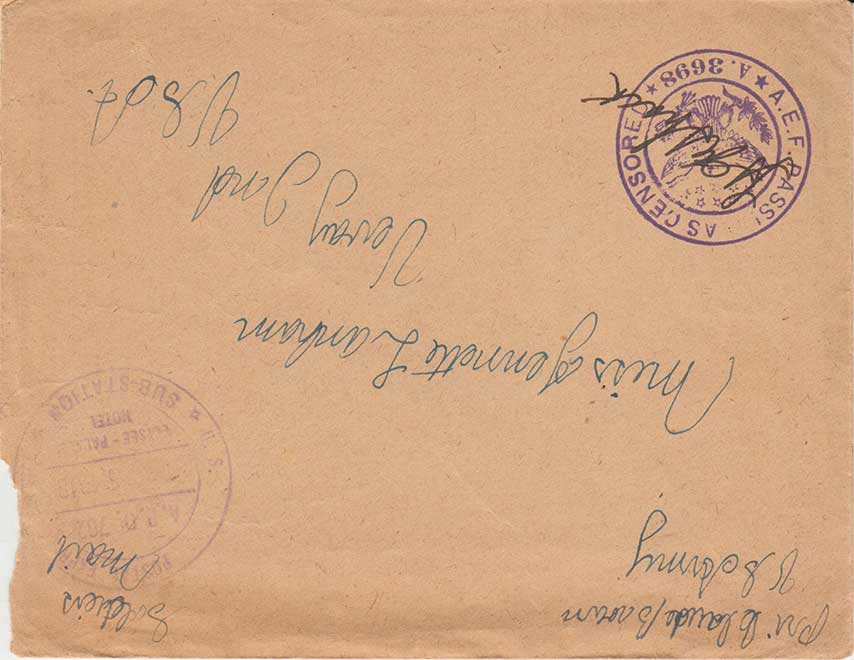 Pri Claude Brown
U S Army
Soldiers
mail
U. S.
POST
A.P.O. 702
ELYSEE-PALACE
HOTEL
★ SUB-STATION
Miss Jennette Lanham
Vevay Ind
U.S.A.
A.E.F. PASSED AS CENSORED
★ A. 3698 ★